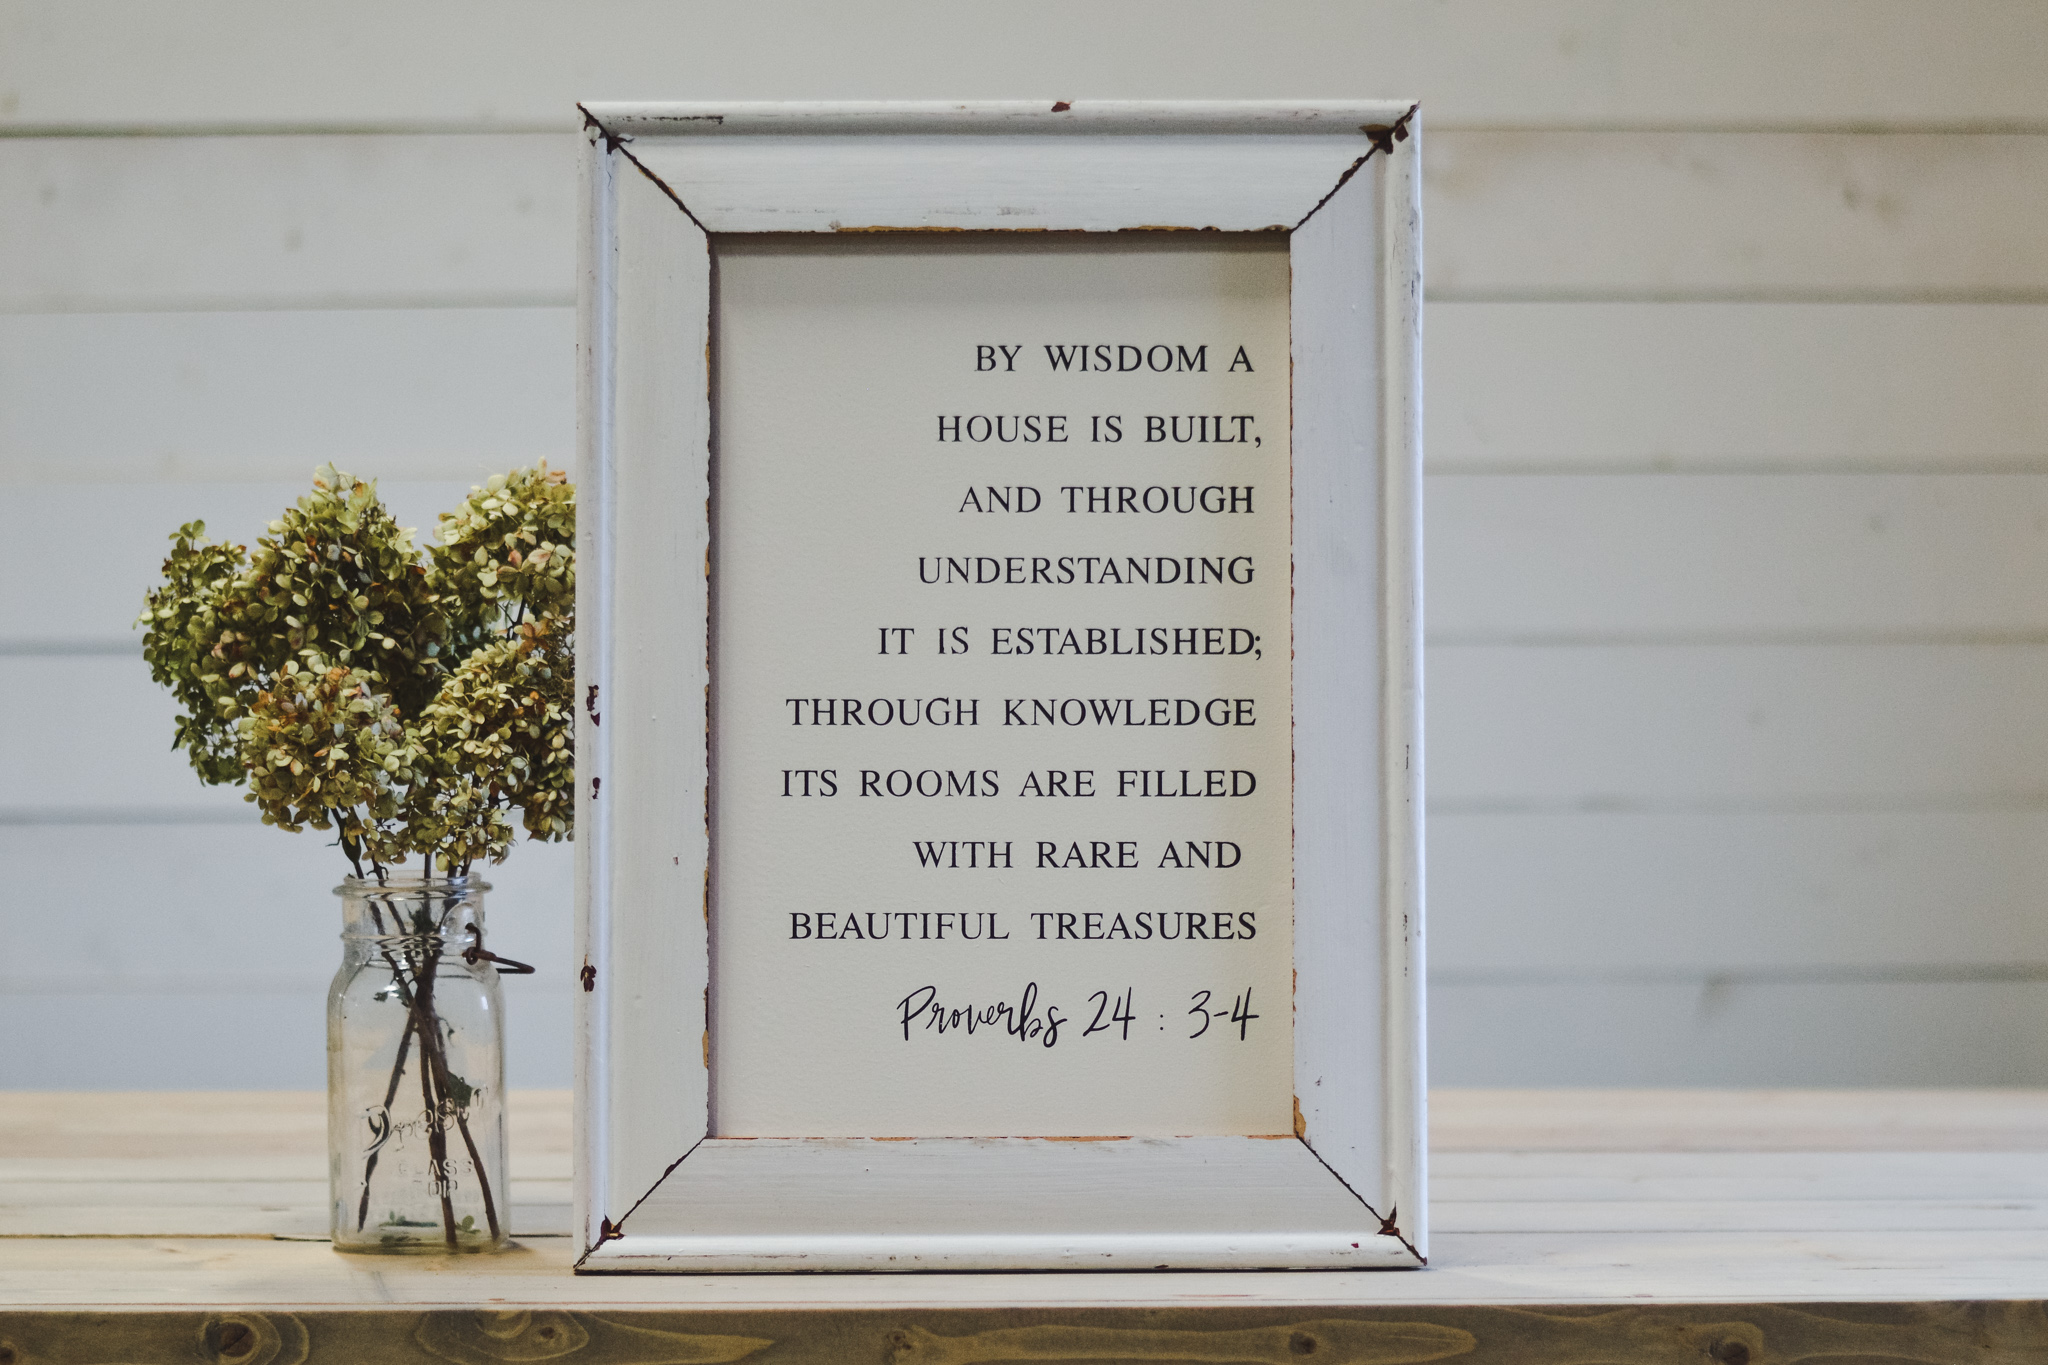 BY WISDOM A
HOUSE IS BUILT,
AND THROUGH
UNDERSTANDING
IT IS ESTABLISHED;
THROUGH KNOWLEDGE
ITS ROOMS ARE FILLED
WITH RARE AND
BEAUTIFUL TREASURES
Proverbs 24 : 3-4
GLASS
TOP